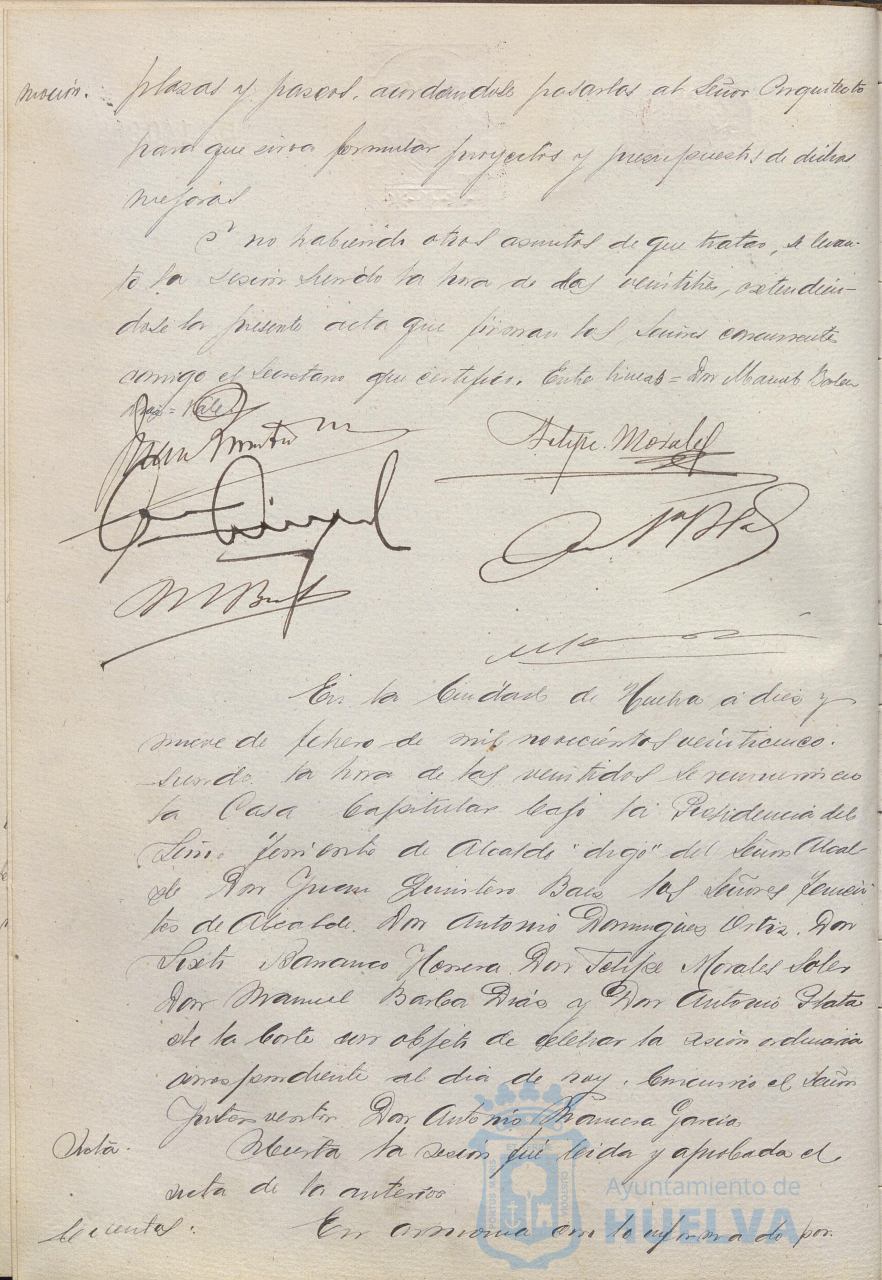 moción. plazas y paseos, acordandose pasarlas al Señor Arquitecto
para que sirva formular proyectos y presupuestos de dichas
mejoras
Y no habiendo otros asuntos de que tratar, se levan-
tó la sesión siendo la hora de las veintitrés, extendien-
dose la presente acta que firman los Señores concurrentes
conmigo el Secretario que certifico. Entre lineas = Don Manuel Barba
Diaz = Vale
Juan Quintero
Felipe Morales
En la Ciudad de Huelva a diez y
nueve de febrero de mil novecientos veinticinco.
siendo la hora de las veintidos se reunieron en
la Casa Capitular bajo la Presidencia del
Señor Teniente de Alcalde "digo" del Señor Alcal-
de Don Juan Quintero Baez los Señores Tenien-
tes de Alcalde. Don Antonio Dominguez Ortiz. Don
Sixto Barranco Herrera Don Felipe Morales Soler
Don Manuel Barba Diáz y Don Antonio Plata
de la Corte con objeto de celebrar la sesión ordinaria
correspondiente al dia de hoy. Concurrió el Señor
Interventor Don Antonio Garcia
Acta. Abierta la sesión fué leida y aprobada el
acta de la anterior
Cuentas. En armonia con lo informado por
Ayuntamiento de
HUELVA